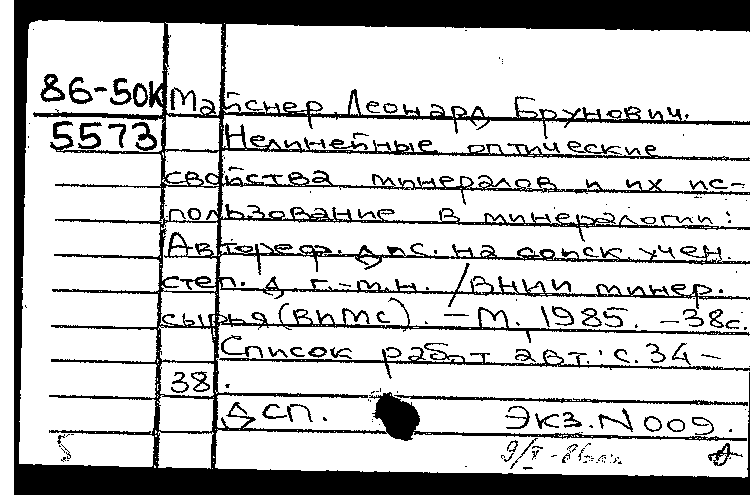 86-50К Майснер, Леонард Брунович.
5573 Нелинейные оптические
свойства минералов и их ис-
пользование в минералогии:
Автореф. дис. на соиск учен.
степ. д. г.-м.н. /ВНИИ минер.
сырья (ВИМС). – М., 1985. – 38с.
Список работ авт.: с. 34–
38.
ДСП. Экз. N 009.